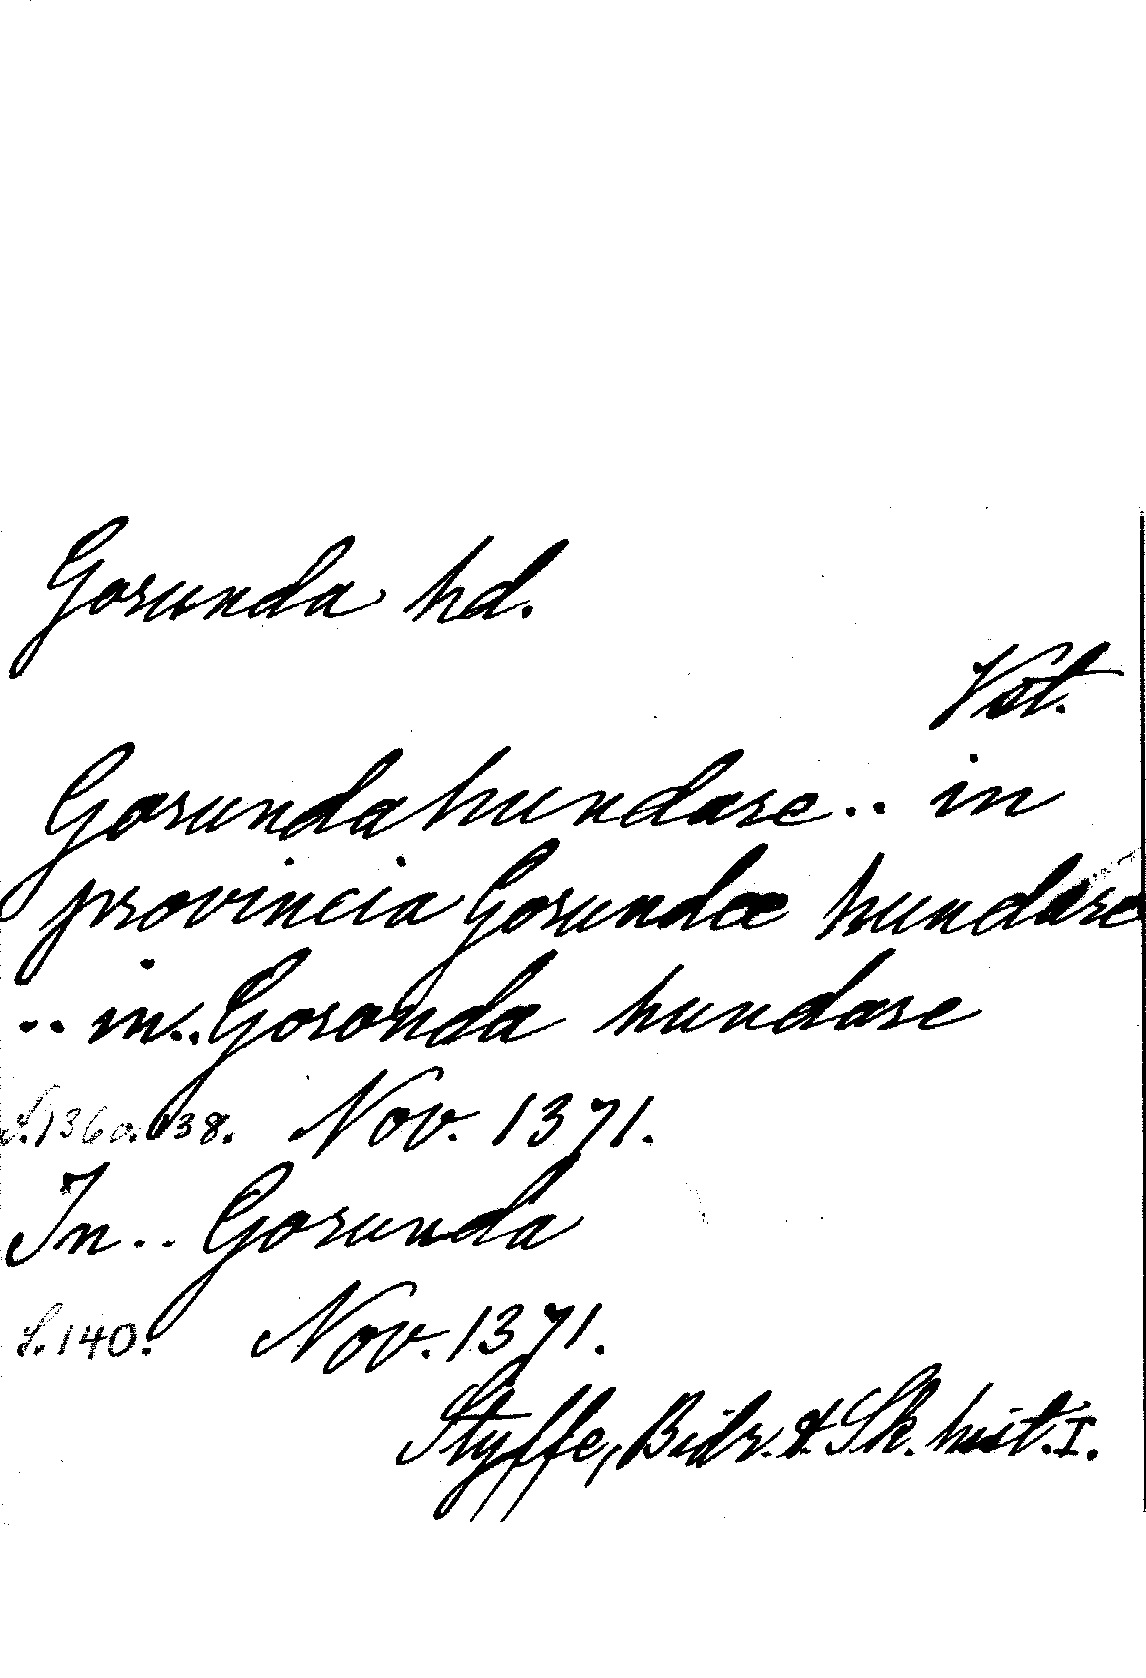 Gorunda hd.
Vst.
Gorundahundare.. in
provincia Gorundæ hundare
.. in.. Goronda hundare
S.136 o. 138. Nov. 1371.
In.. Gorunda
S.140. Nov. 1371.
Styffe, Bidr. t. Sk. hist. I.